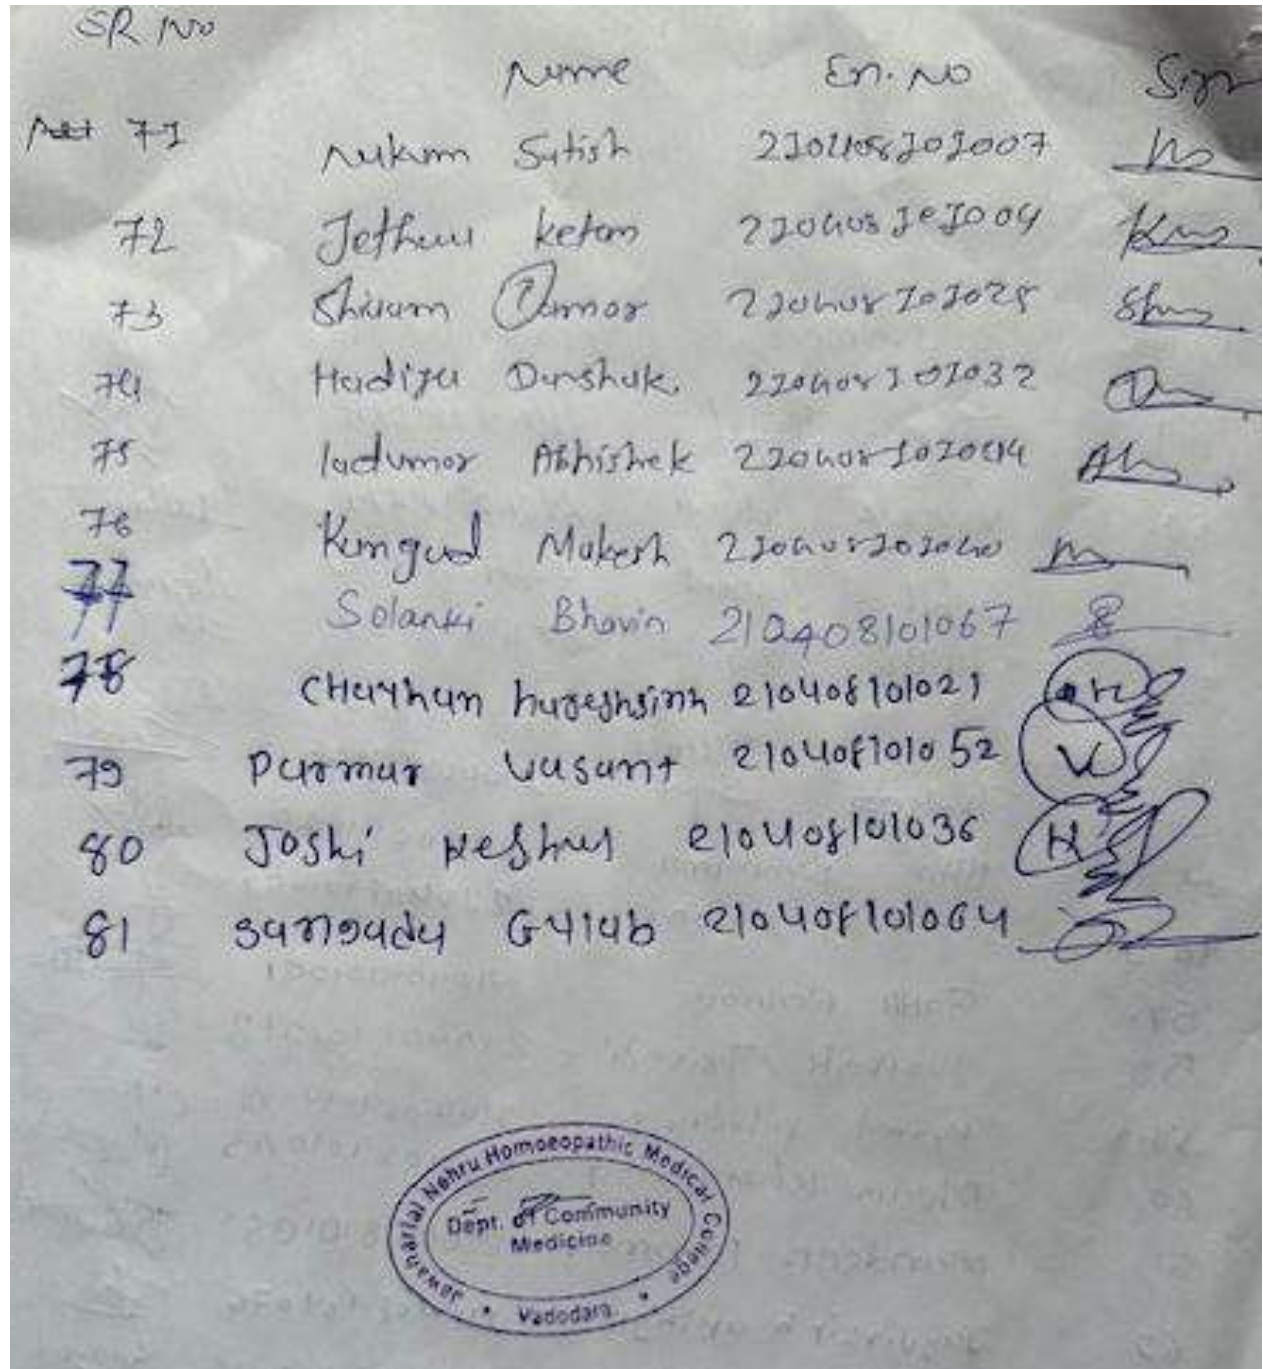 SR NO
Name En. No Sign
71 Nukum Satish 210408101007
72 Jethwa Ketan 210408101004
73 Shivam Damor 210408101025
74 Hadiya Darshak. 210408101032
75 ladumor Abhishek 210408101044
76 Kamgud Mukesh 210408101040
77
77 Solanki Bhavin 210408101067
78 CHauhan hareshsinh 210408101021
79 Parmar Vasant 210408101052
80 Joshi 210408101036
81 sangada Gulab 210408101064
Jawaharlal Nehru Homoeopathic Medical College
Dept. of Community
Medicine
Vadodara.